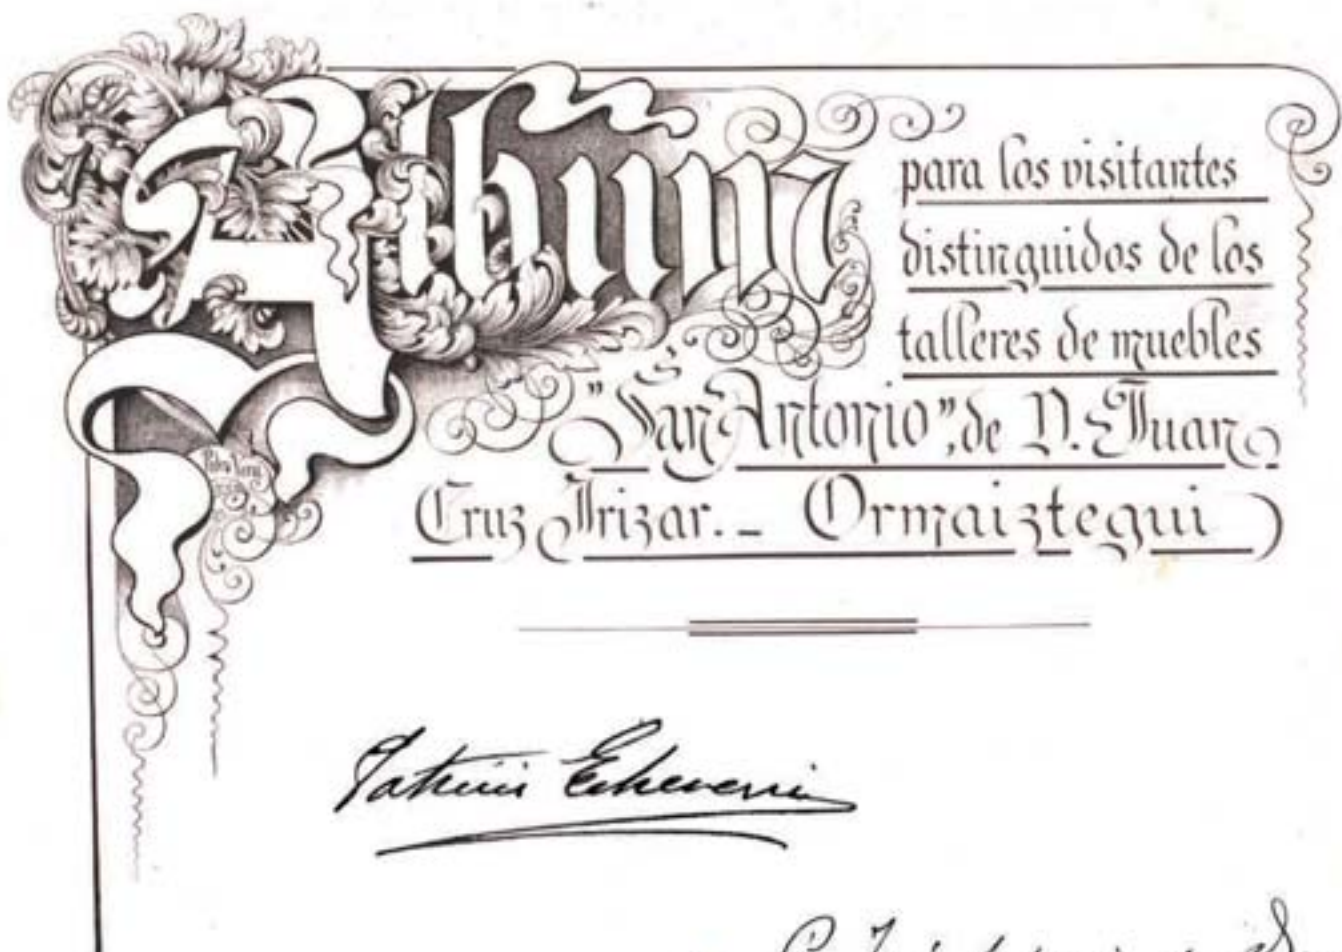 Album
para los visitantes
distinguidos de los
talleres de muebles
"San Antonio", de D. Juan
Cruz Irizar.- Ormaiztegui
Patricio Echeverria